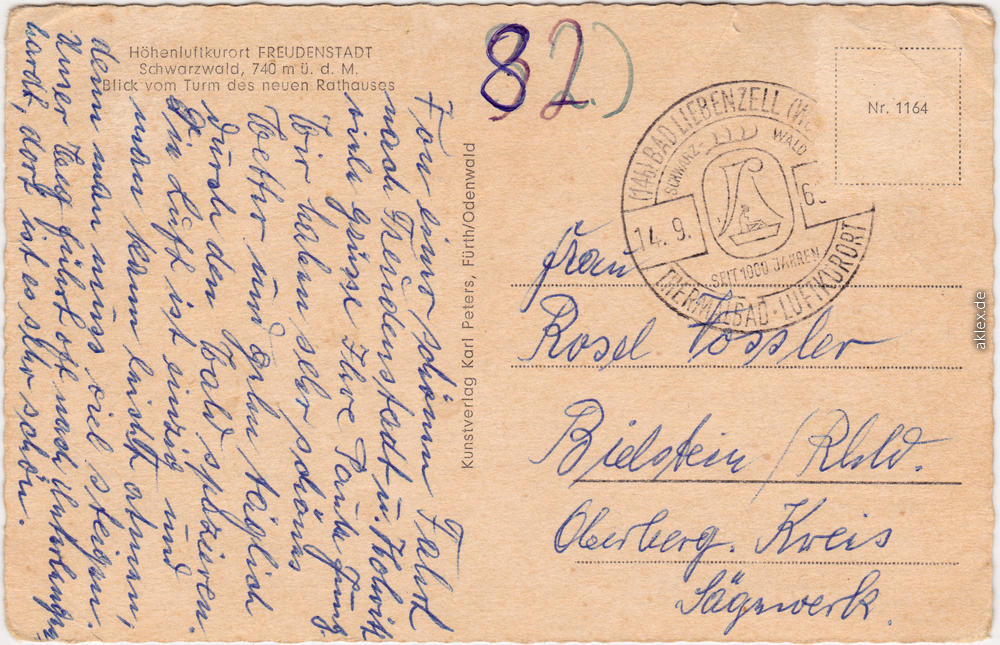 Höhenluftkurort FREUDENSTADT
Schwarzwald, 740 m ü. d. M.
Blick vom Turm des neuen Rathauses
82)
Von einer schönen Fahrt
nach Freudenstadt u.
viele Grüsse Ihre Tante
Wir haben sehr schönes
Wetter und gehen täglich
durch den Wald spazieren.
Die Luft ist einzig und
man kann leicht atmen,
denn man muss viel steigen.
Unser Weg führt oft nach Unterlengen
hardt, dort ist es sehr schön.
Kunstverlag Karl Peters, Fürth/Odenwald
(14b) BAD LIEBENZELL
SCHWARZ- WALD
14. 9.
SEIT 1000 JAHREN
THERMALBAD · LUFTKURORT
Nr. 1164
Frau
Rosel Vossler
Bielstein / Rhld.
Oberberg. Kreis
Sägewerk.
aklex.de